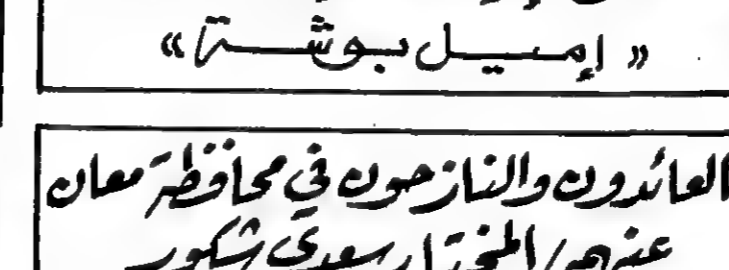 « إميل بوشة »
العائدون والنازحون في محافظة معان
عنهم / المختار سعدي شكور